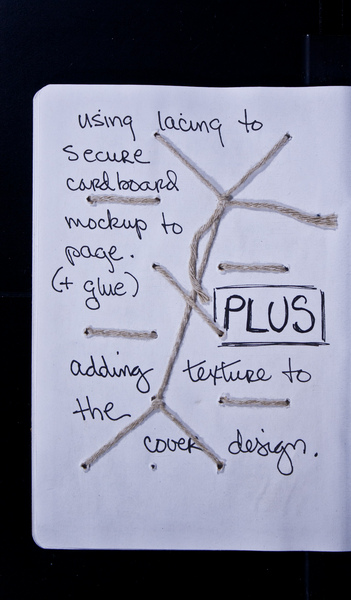 using lacing to
secure
cardboard
mockup to
page.
(+ glue)
PLUS
adding texture to
the
cover design.